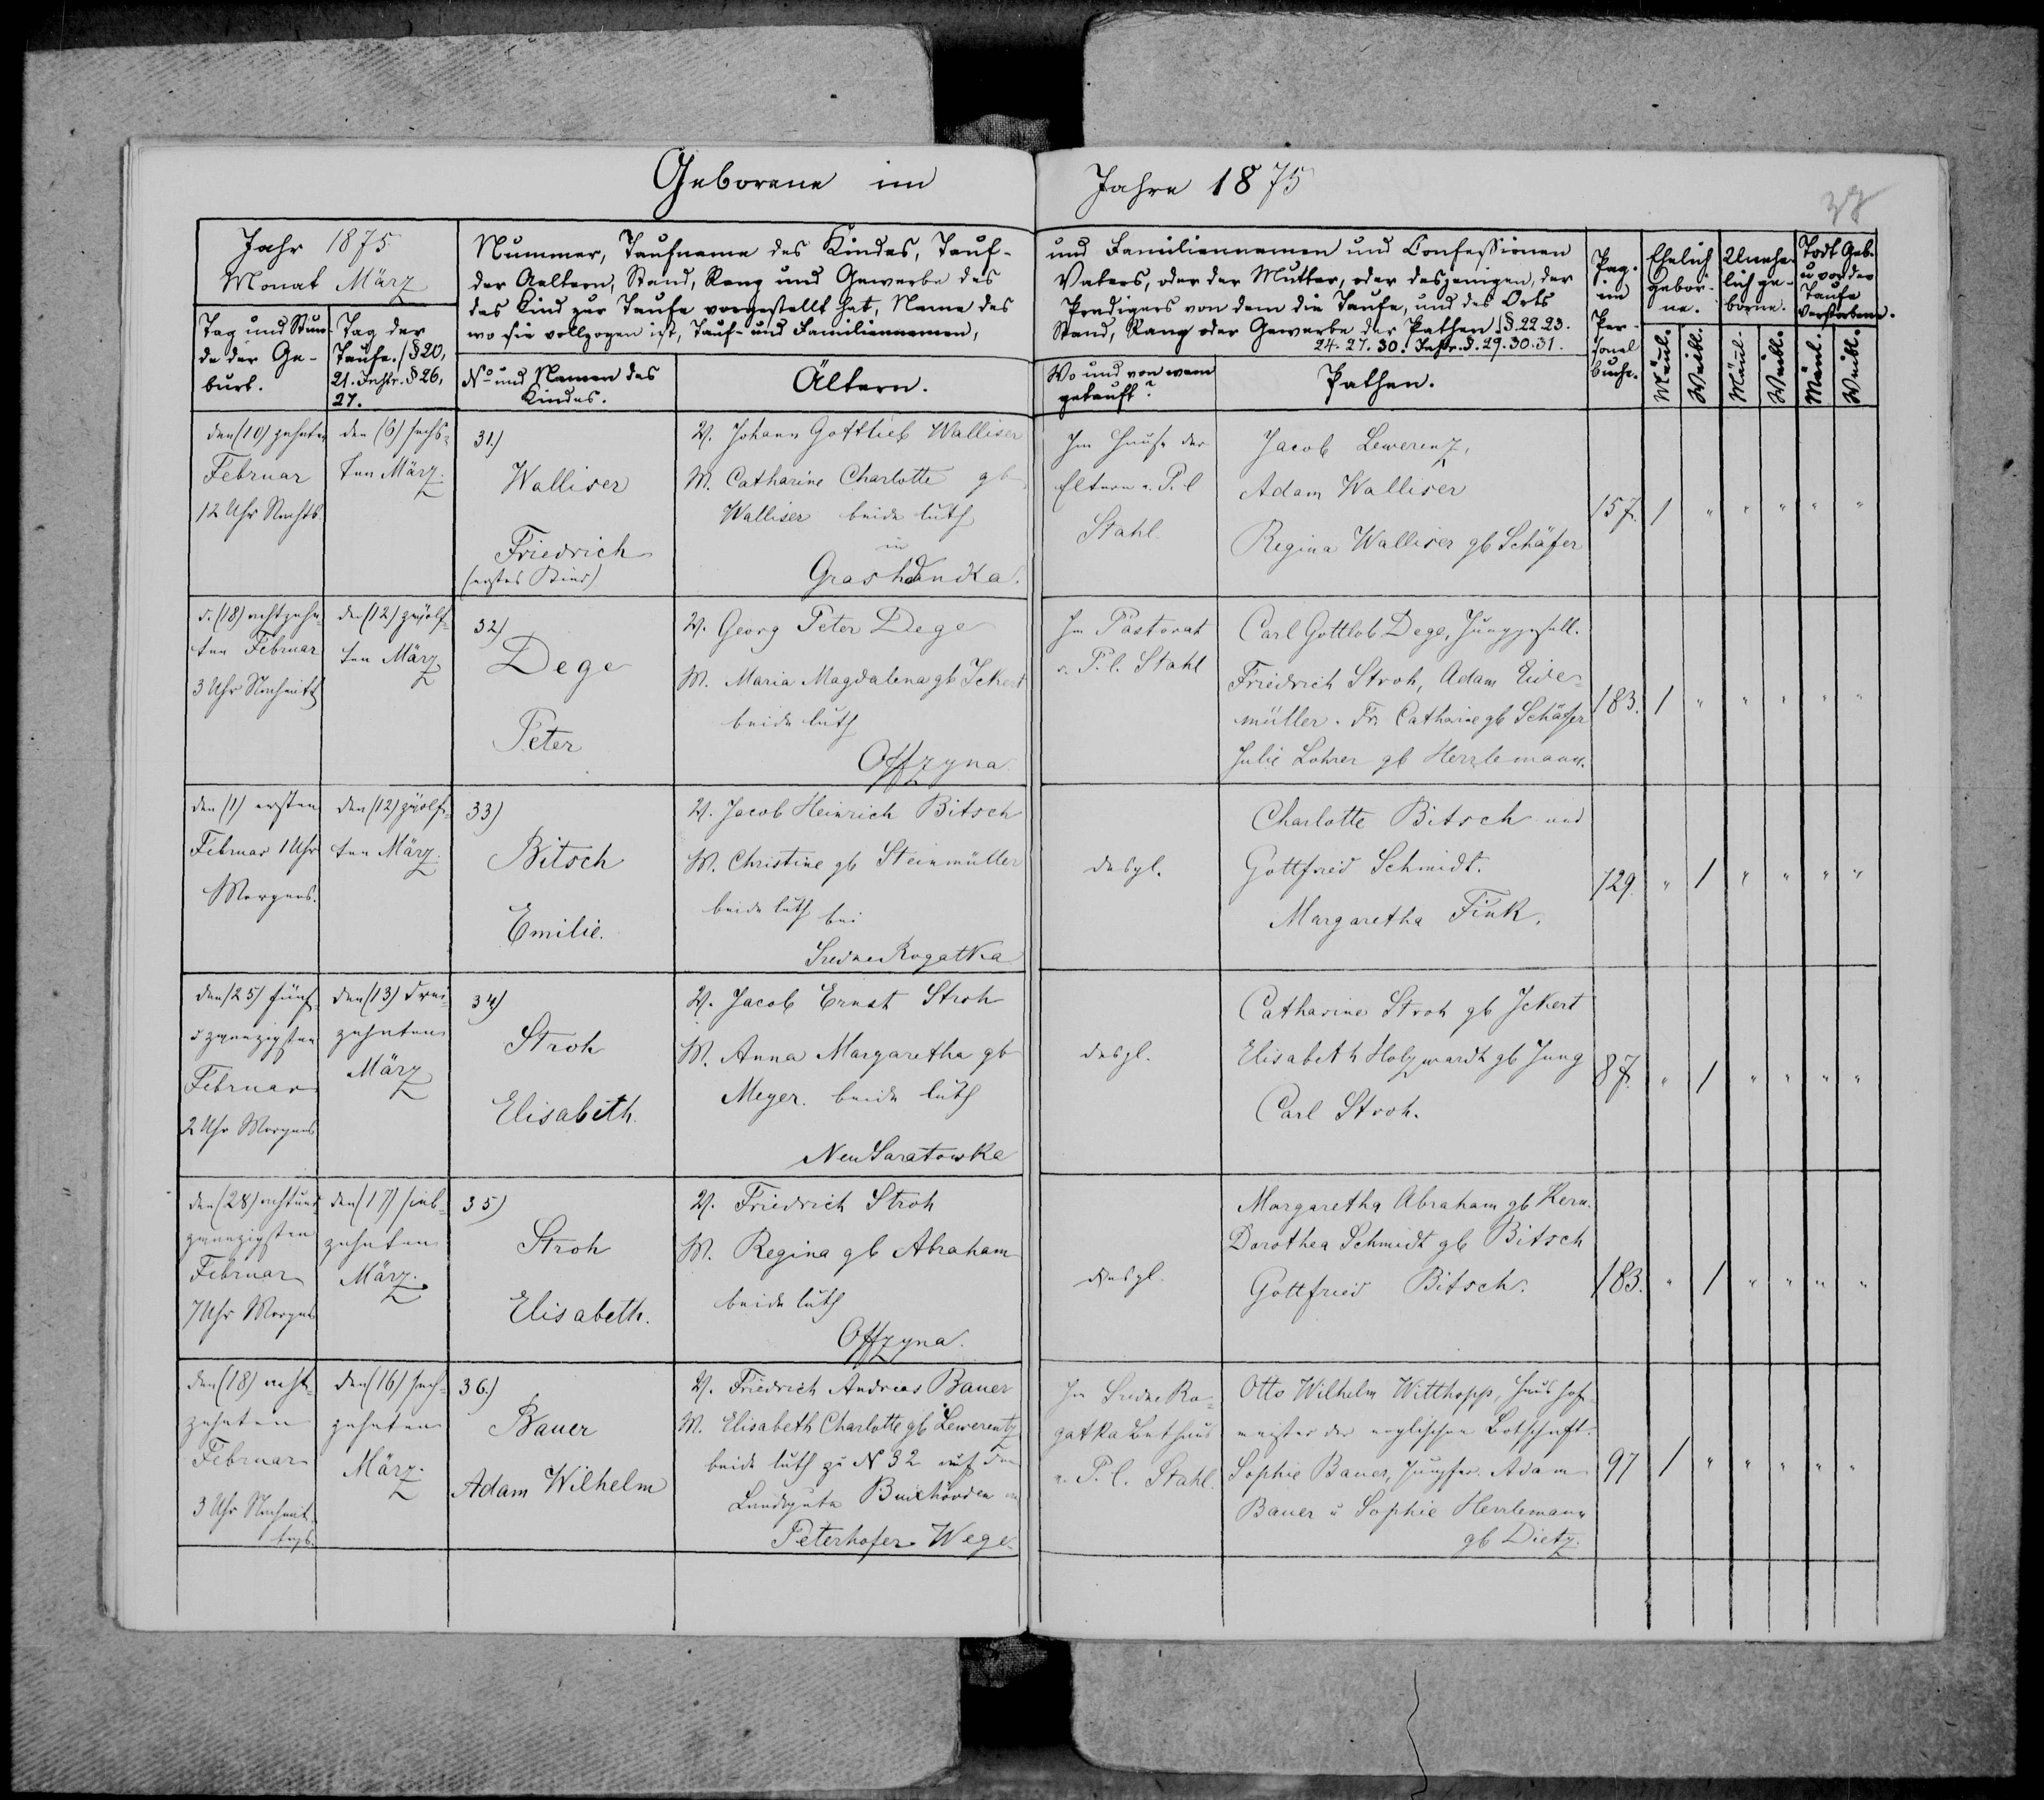 Geborene im Jahre 1875
Jahr 1875
Monat März
Tag und Stun-
de der Ge-
burt.
Tag der
Taufe. (§ 20,
21. Instr. § 26,
27.
Nummer, Taufname des Kindes, Tauf-
der Aeltern, Stand, Rang und Gewerbe des
das Kind zur Taufe vorgestellt hat, Name des
wo sie vollzogen ist, Tauf- und Familiennamen,
No und Namen des
Kindes.
Ältern.
und Familiennamen und Confessionen
Vaters, oder der Mutter, oder desjenigen, der
Predigers von dem die Taufe, und des Orts
Stand, Rang oder Gewerbe der Pathen (§ 22 23.
24. 27. 30. Instr. §. 29. 30. 31.
Wo und von wem
getauft?
Pathen.
Pag.
im
Per-
sonal
buche.
Ehelich
gebor-
ne.
Unehe-
lich ge-
borne.
Todt Geb.
u vor der
Taufe
Verstorbene.
Männl.
Weibl.
Männl.
Weibl.
Männl.
Weibl.
den (10) zehnten
Februar
12 Uhr Nachts
den (6) sechs-
ten März.
31)
Walliser
Friedrich
(erstes Kind)
V. Johann Gottlieb Walliser
M. Catharine Charlotte gb
Walliser beide luth
in
Grashdanka.
Im Hause der
Eltern v. P. l
Stahl.
Jacob Lewerenz,
Adam Walliser
Regina Walliser gb Schäfer
157. 1 " " " " "
d. (18) achtzehn-
ten Februar
3 Uhr Nachmitt
den (12) zwölf-
ten März
32)
Dege
Peter
V. Georg Peter Dege
M. Maria Magdalena gb Jckert
beide luth
Offzyna.
Im Pastorat
v. P. l. Stahl
Carl Gottlob Dege, Junggesell.
Friedrich Stroh, Adam Eide-
müller. Fr. Catharine gb Schäfer
Julie Lohrer gb Herrlemann.
183. 1 " " " " "
den (1) ersten
Februar 1 Uhr
Morgens.
den (12) zwölf-
ten März.
33)
Bitsch
Emilie.
V. Jacob Heinrich Bitsch
M. Christine gb Steinmüller
beide luth bei
Sredne Rogatka
desgl.
Charlotte Bitsch und
Gottfried Schmidt.
Margaretha Fink.
129. " 1 " " " "
den (25) fünf-
d zwanzigsten
Februar
2 Uhr Morgens
den (13) drei-
zehnten
März
34)
Stroh
Elisabeth.
V. Jacob Ernst Stroh
M. Anna Margaretha gb
Meyer. beide luth
Neu Saratowka
desgl.
Catharine Stroh gb Jckert
Elisabeth Holzwardt gb Jung
Carl Stroh.
87. " 1 " " " "
den (28) achtund
zwanzigsten
Februar
7 Uhr Morgens
den (17) sieb-
zehnten
März.
35)
Stroh
Elisabeth.
V. Friedrich Stroh
M. Regina gb Abraham
beide luth
Offzyna.
desgl.
Margaretha Abraham gb Kern.
Dorothea Schmidt gb Bitsch
Gottfried Bitsch.
183. " 1 " " " "
den (18) acht-
zehnten
Februar
3 Uhr Nachmit-
tags.
den (16) sech-
zehnten
März.
36.)
Bauer
Adam Wilhelm
V. Friedrich Andreas Bauer
M. Elisabeth Charlotte gb Lewerentz
beide luth zu N 32 auf dem
Landgute Buxhövden am
Peterhofer Wege.
Im Sredne Ro-
gatka Bethaus
v. P. l. Stahl.
Otto Wilhelm Witthopp, Haushof-
meister der englischen Botschaft.
Sophie Bauer, Jungfer. Adam
Bauer u Sophie Herrlemann
gb Dietz.
97 1 " " " " "